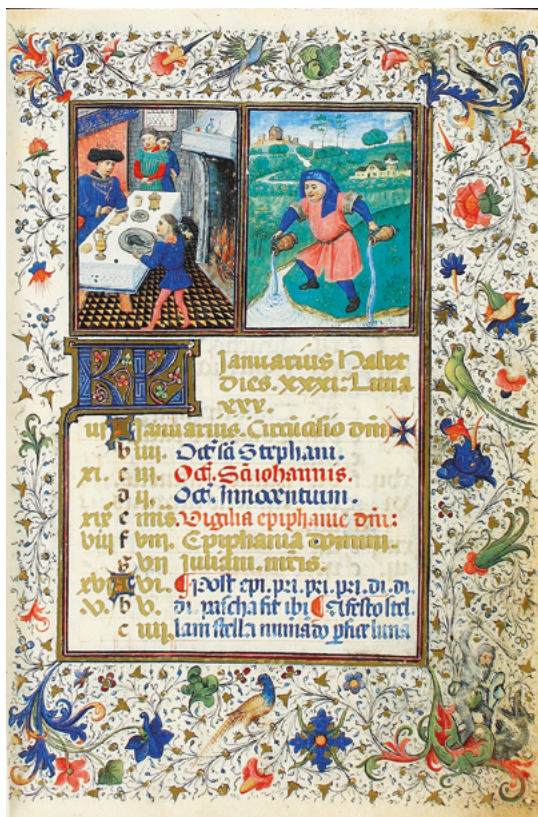 KL Januarius habet
dies. xxxi. Luna
xxx.
iii A Januarius. Circūcisio dn̄i
b iiii. Oct̄ sc̄i Stephani.
xi. c iii. Oct̄. Sc̄i iohannis.
d ii. Oct̄. Innocentium.
xix e Vigilia epiphanie dn̄i:
viii f viii. Epiphania domini.
g vii Juliani. m̄ris.
xvi A vi. Post epi. pri. pri. pri. di. di.
v. b v. di. pascha fit ibi festo stel
c iiii. lam stella luna